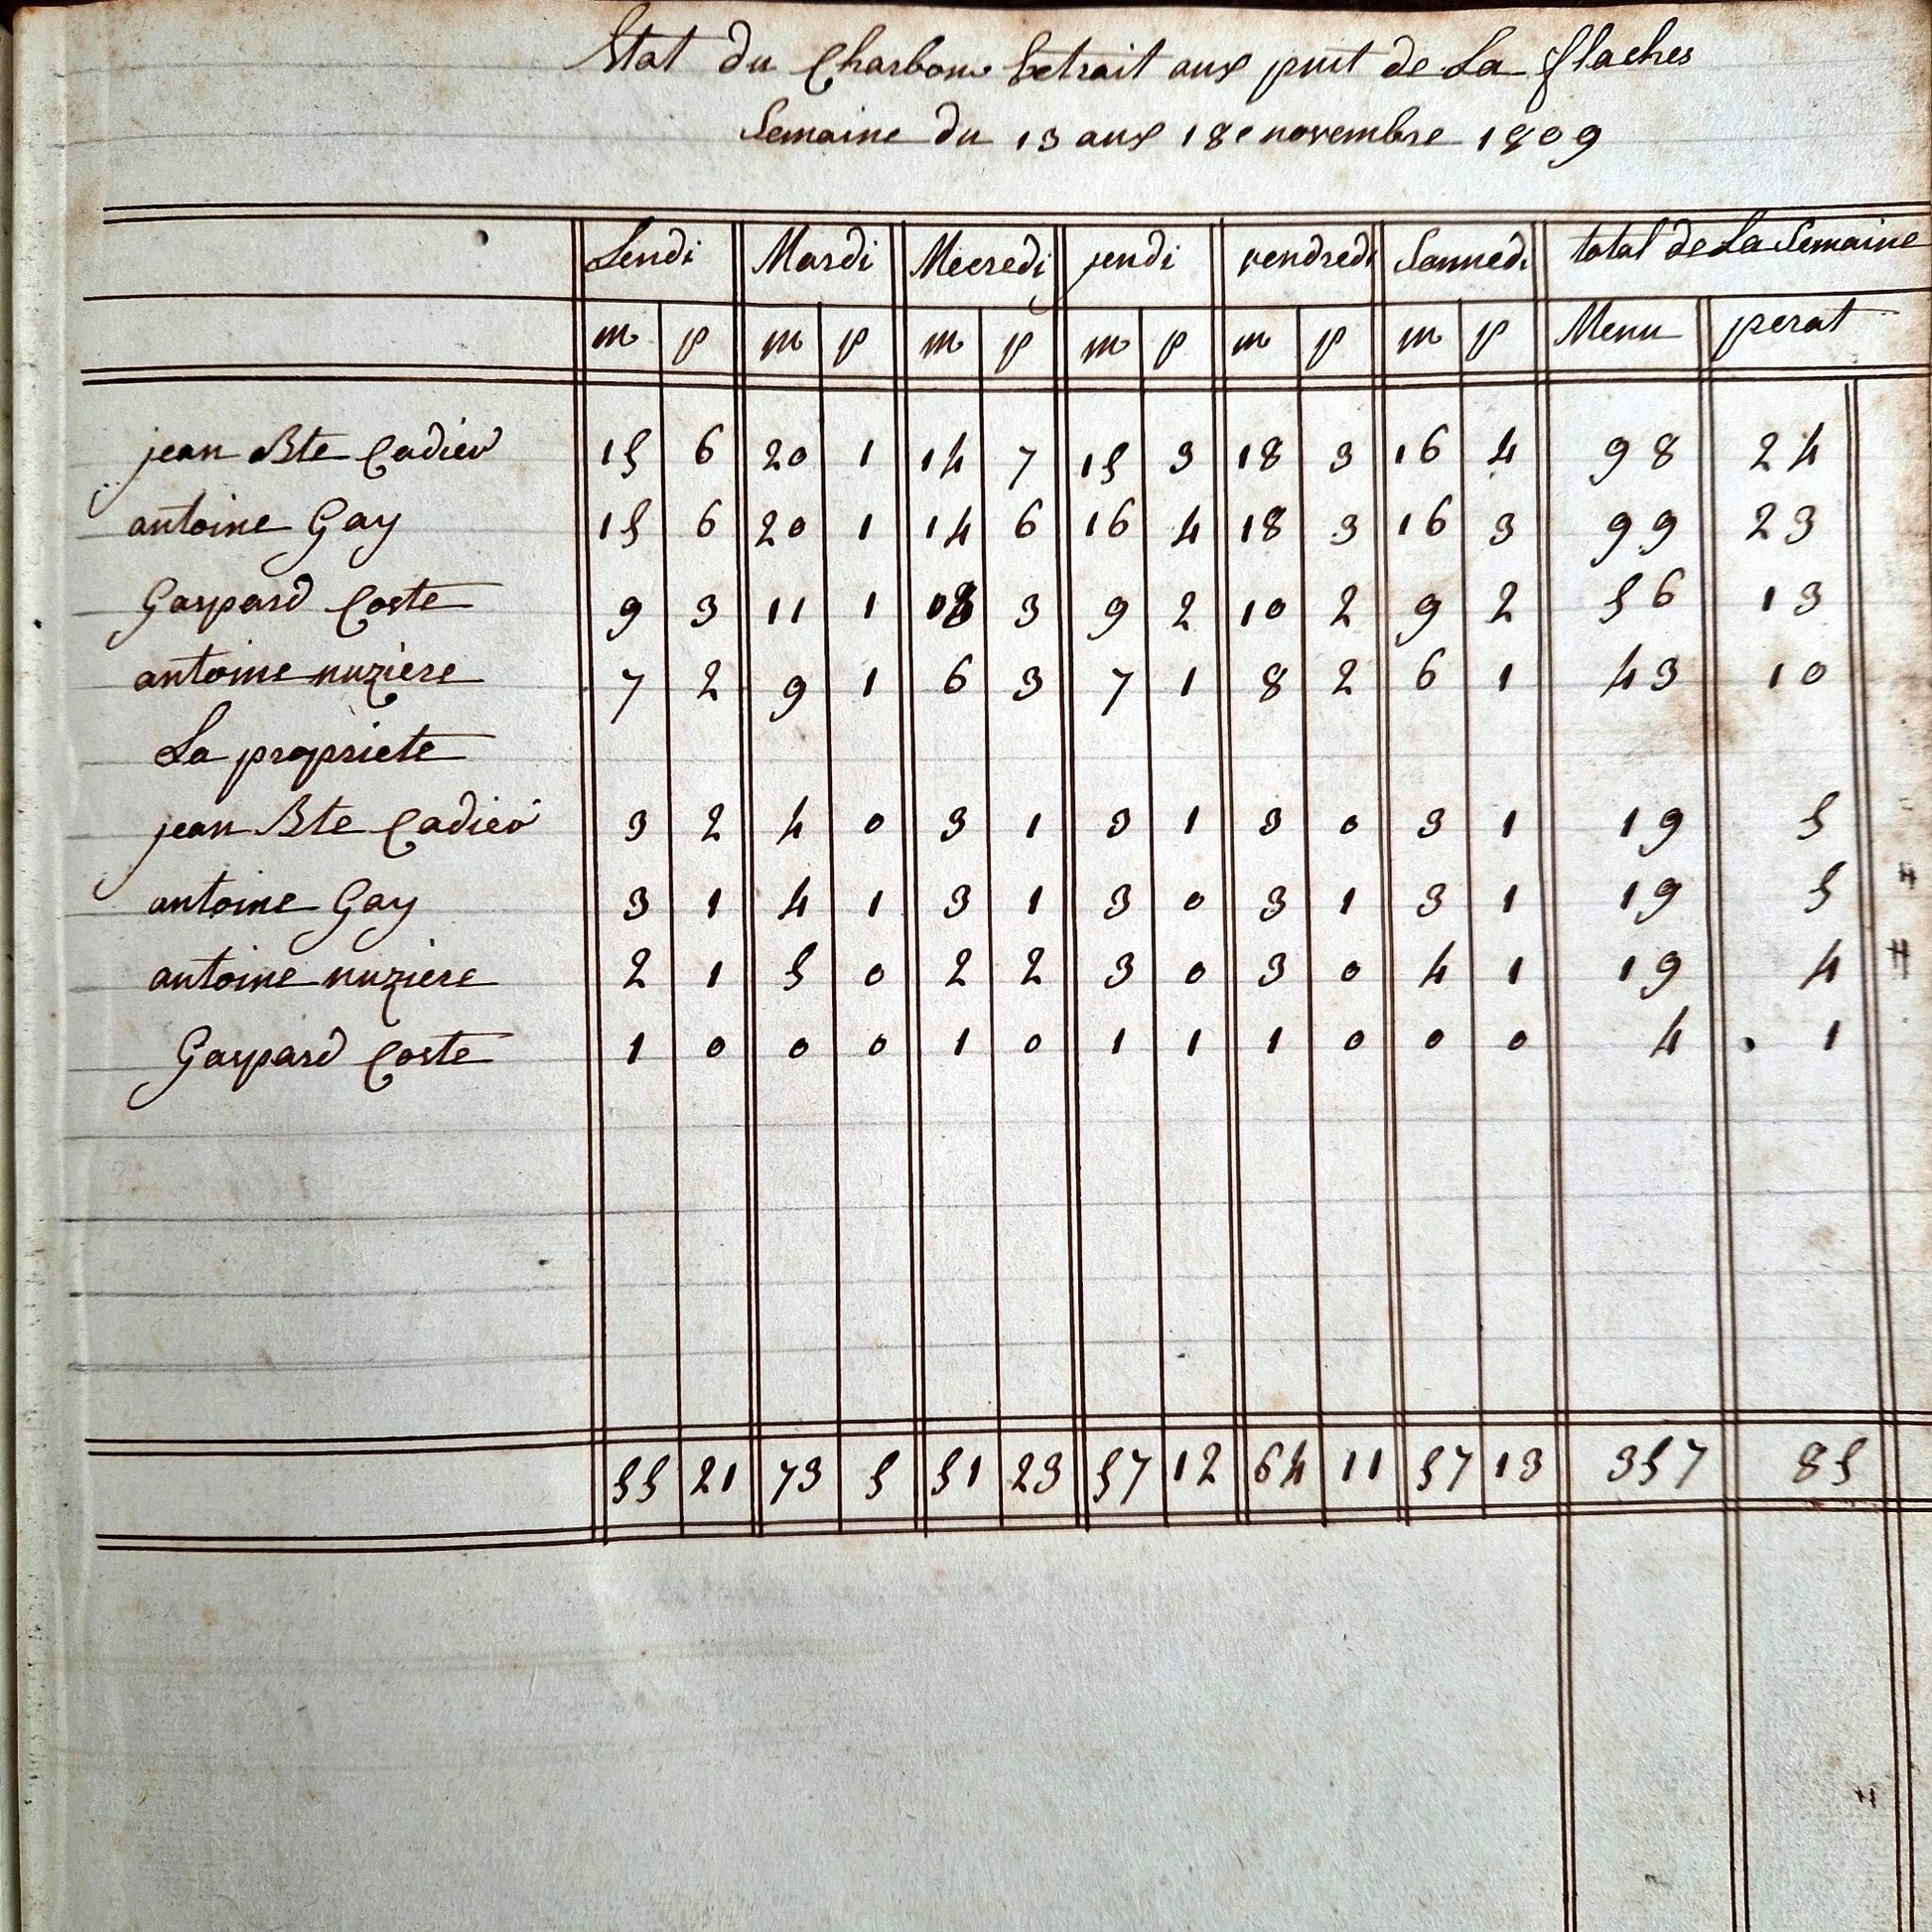 Etat du Charbon Extrait aux puit de La flaches
Semaine du 13 aux 18e novembre 1809
Lendi Mardi Mecredi jeudi vendredi Sammedi total de La Semaine
m p m p m p m p m p m p Menu perat
jean Bte Cadier 15 6 20 1 14 7 15 3 18 3 16 4 98 24
antoine Gay 15 6 20 1 14 6 16 4 18 3 16 3 99 23
Gaspard Coste 9 3 11 1 08 3 9 2 10 2 9 2 56 13
antoine nuziere 7 2 9 1 6 3 7 1 8 2 6 1 43 10
La propriete
jean Bte Cadier 3 2 4 0 3 1 3 1 3 0 3 1 19 5
antoine Gay 3 1 4 1 3 1 3 0 3 1 3 1 19 5
antoine nuziere 2 1 5 0 2 2 3 0 3 0 4 1 19 4
Gaspard Coste 1 0 0 0 1 0 1 1 1 0 0 0 4 1
55 21 73 5 51 23 57 12 64 11 57 13 357 85